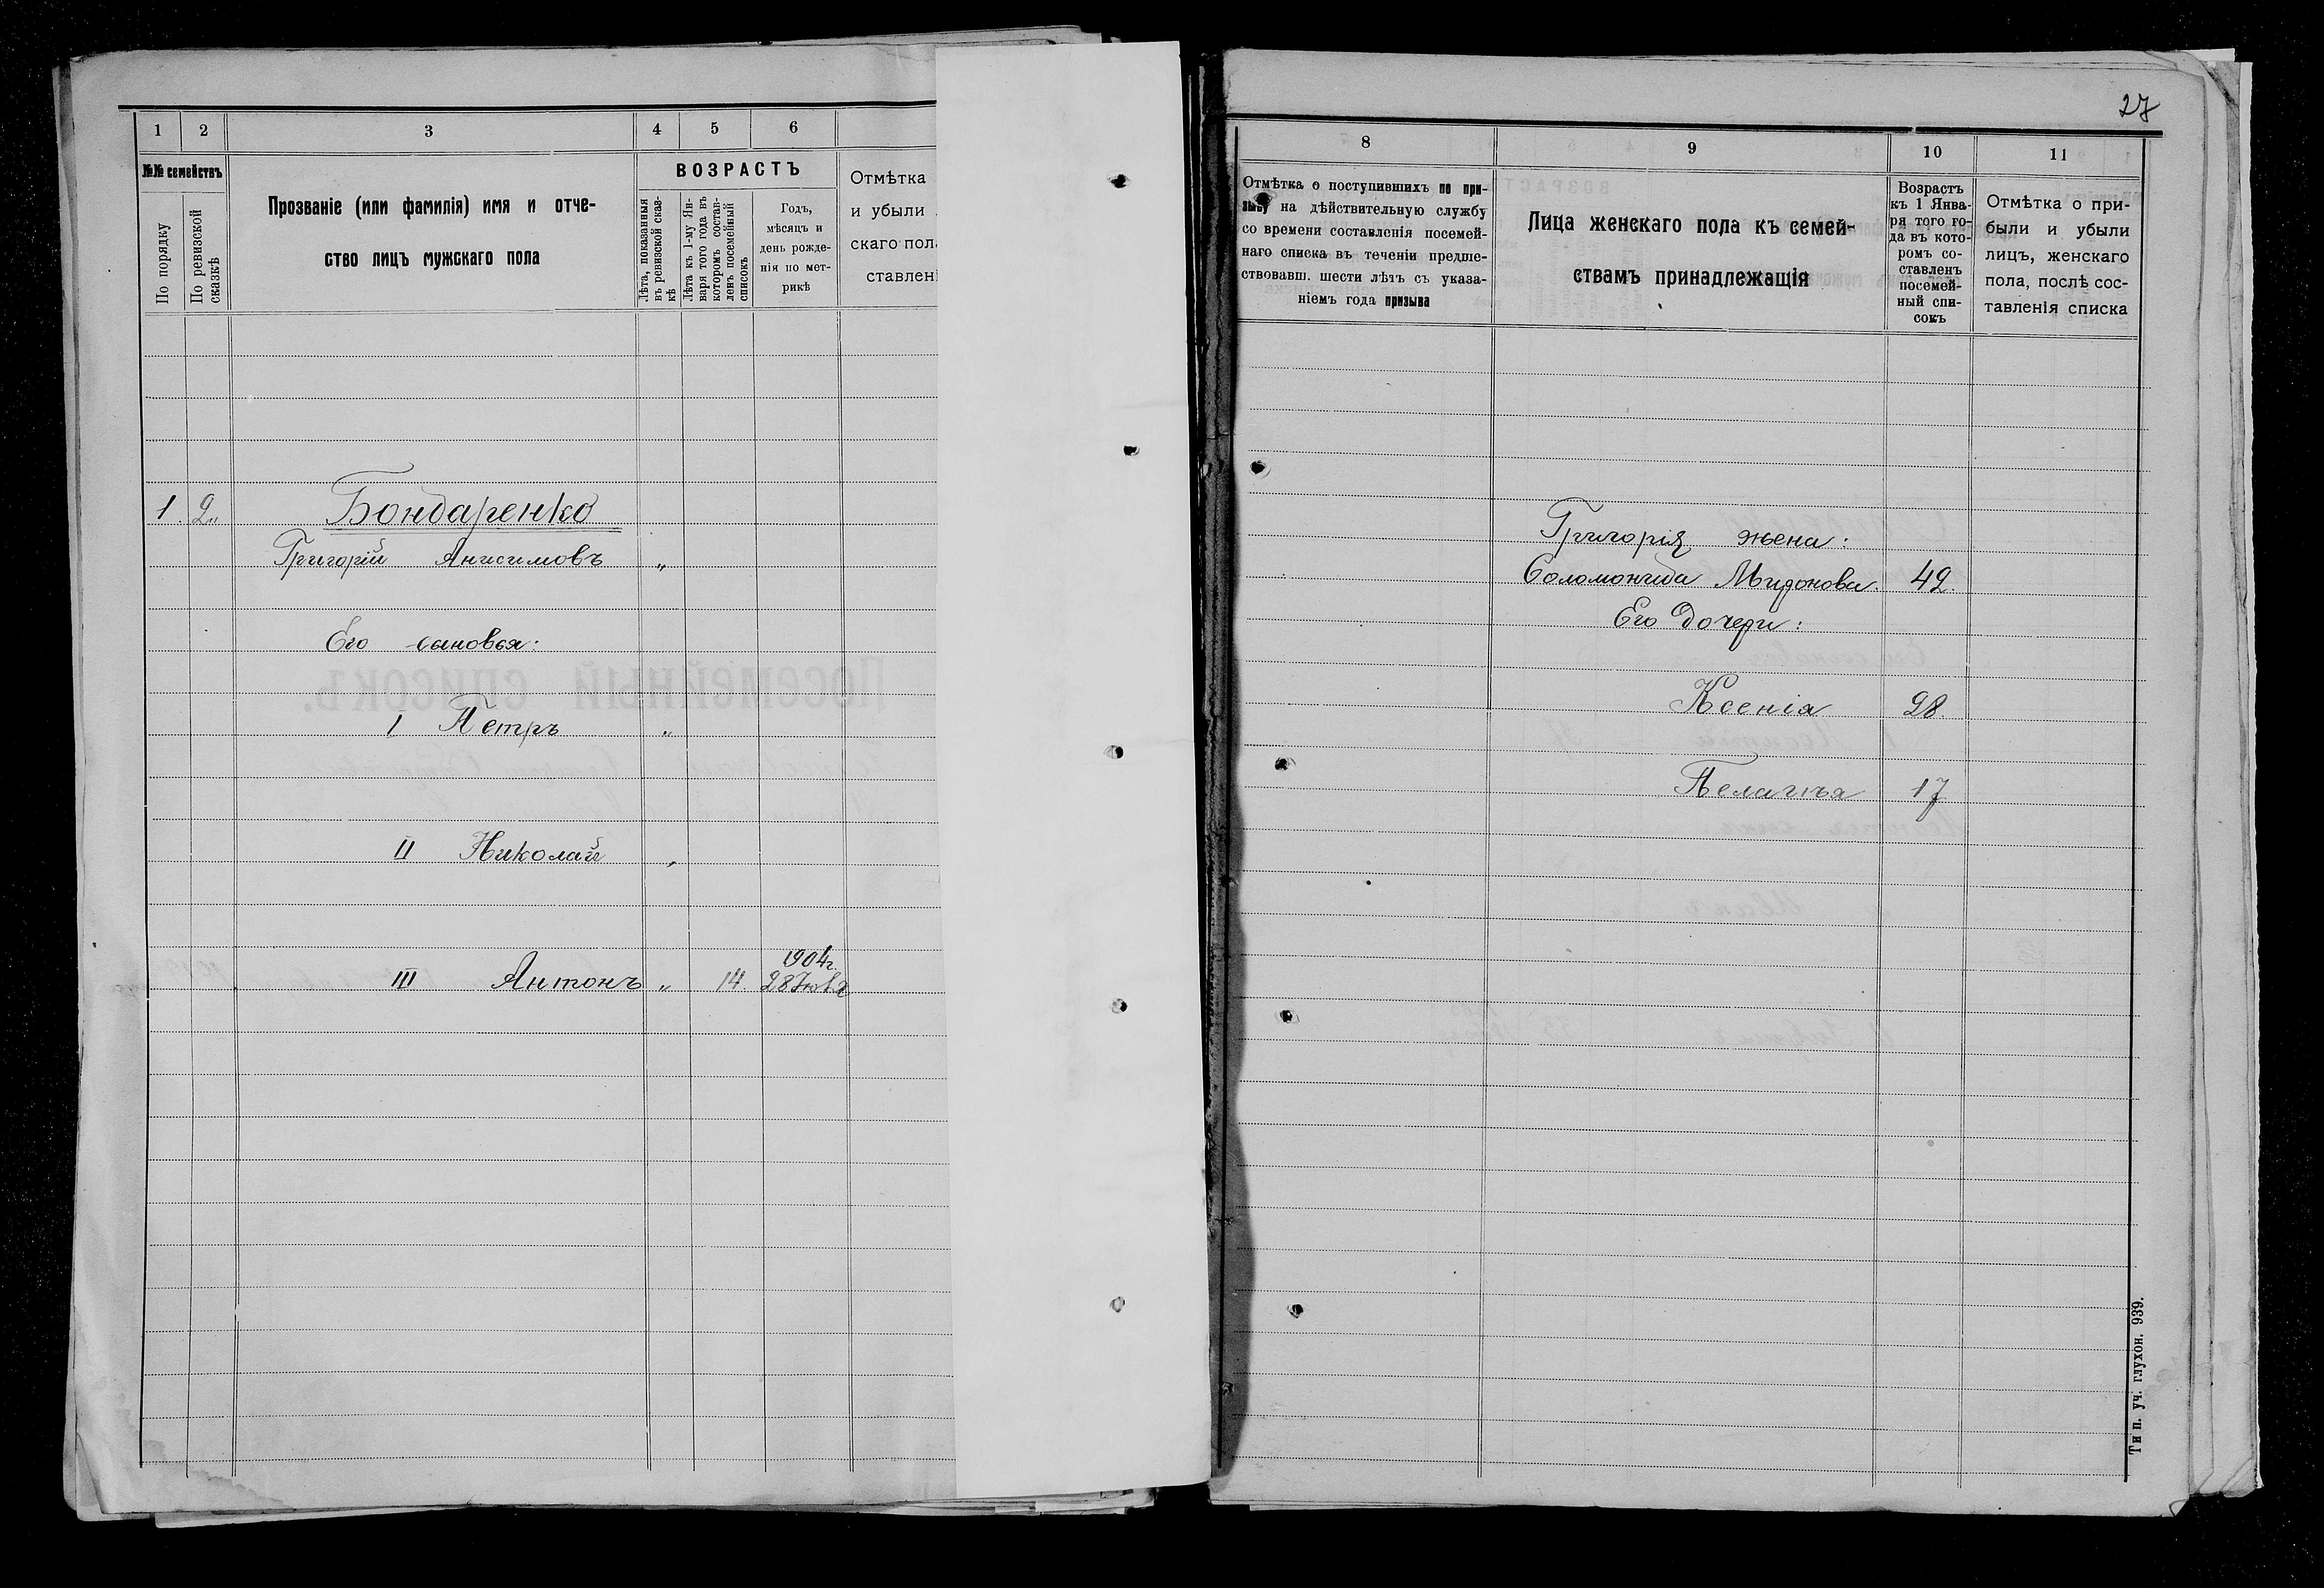 27
1 2 3 4 5 6
№№ семействъ
По порядку
По ревизской сказкѣ
Прозваніе (или фамилія) имя и отче-
ство лицъ мужскаго пола
ВОЗРАСТЪ
Лѣта, показанныя
въ ревизской сказ-
кѣ
Лѣта къ 1-му Ян-
варя того года въ
которомъ состав-
ленъ посемейный
списокъ
Годъ,
мѣсяцъ и
день рожде-
нія по мет-
рикѣ
Отмѣтка
и убыли
скаго пол
ставлені
1. 2„ Бондаренко
Григорій Анисимовъ „
Его сыновья:
I Петръ „
II Николай „
1904г.
III Антонъ „ 14. 28 Іюля
8 9 10 11
Отмѣтка о поступившихъ по при-
зыву на дѣйствительную службу
со времени составленія посемей-
наго списка въ теченіи предше-
ствовавш. шести лѣтъ съ указа-
ніемъ года призыва
Лица женскаго пола къ семей-
ствамъ принадлежащія
Возрастъ
къ 1 Янва-
ря того го-
да въ кото-
ромъ со-
ставленъ
посемей-
ный спи-
сокъ
Отмѣтка о при-
были и убыли
лицъ, женскаго
пола, послѣ сос-
тавленія списка
Григорія жена:
Соломонида Миронова. 42.
Его дочери:
Ксенія 28.
Пелагѣя 17
Тип. уч. глухон. 939.